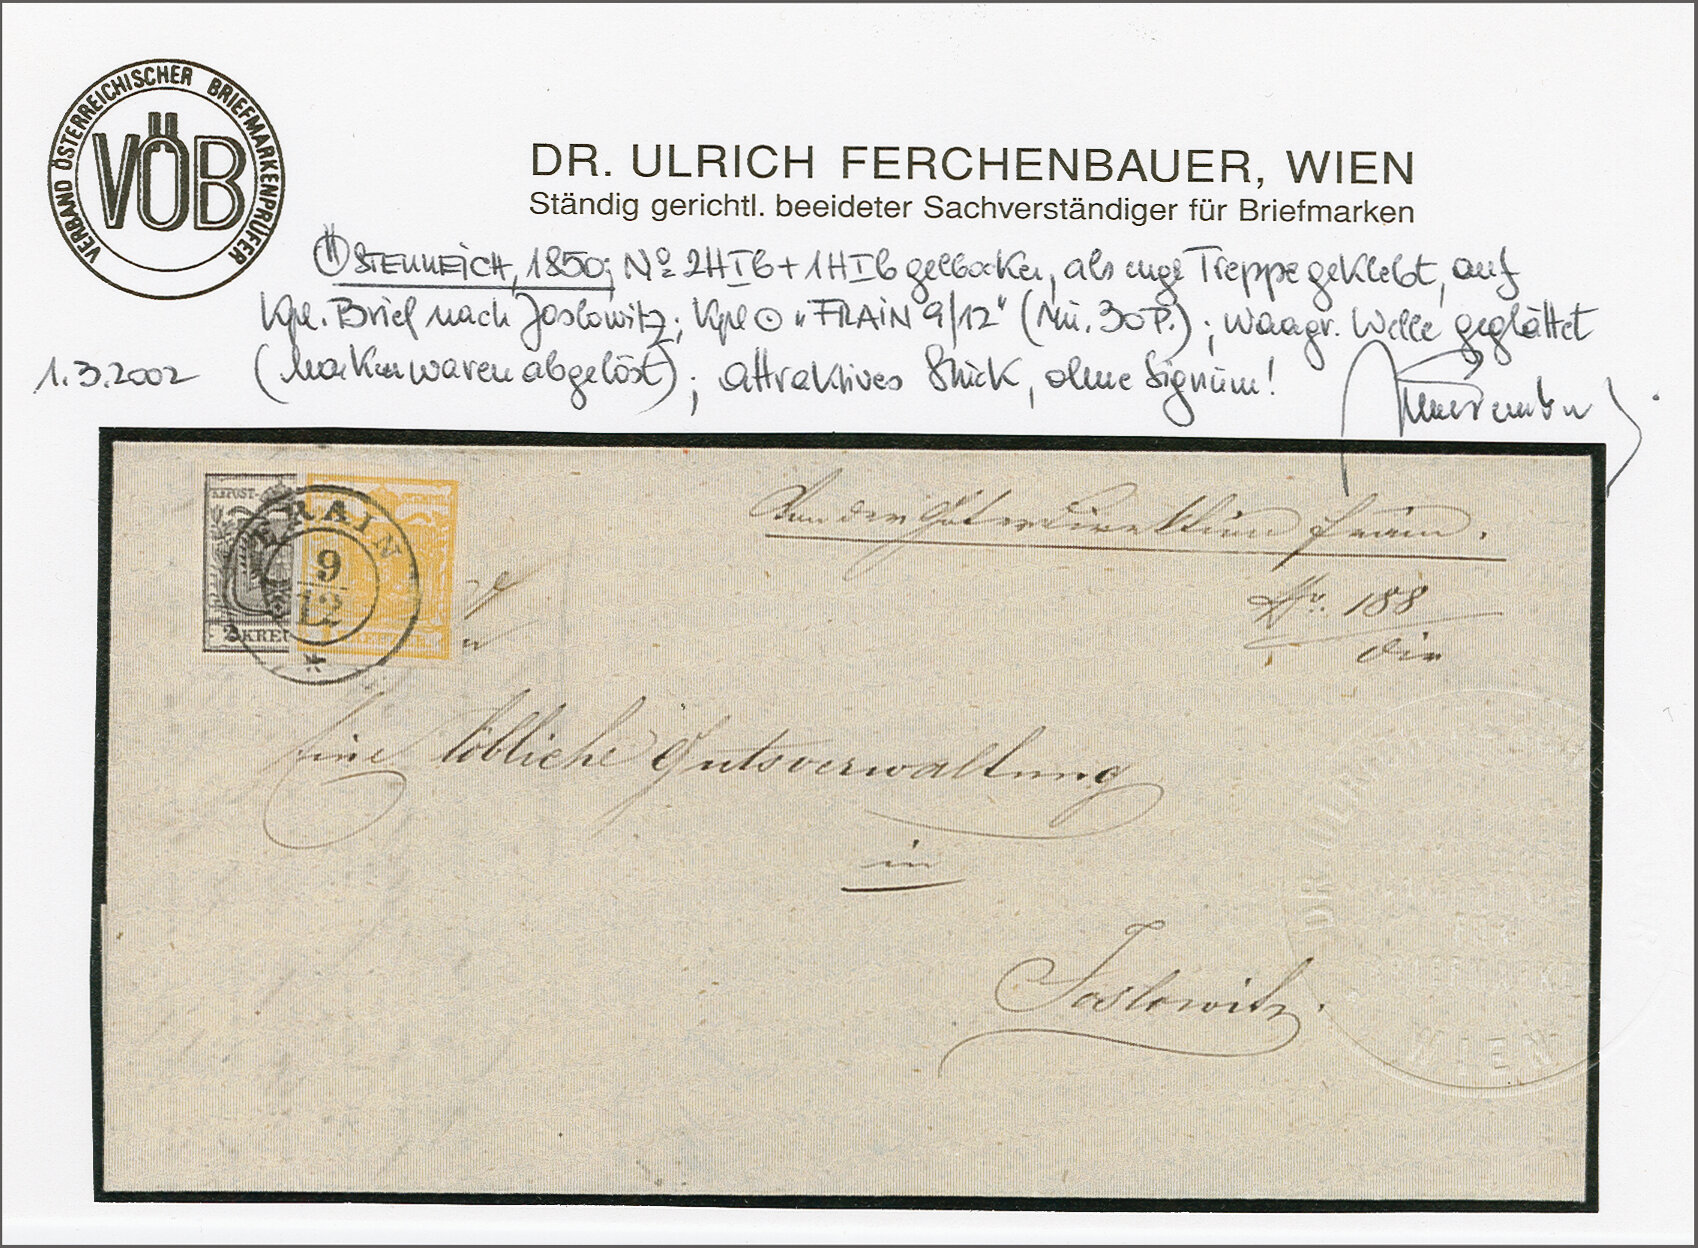 VERBAND ÖSTERREICHISCHER BRIEFMARKENPRÜFER
VÖB
DR. ULRICH FERCHENBAUER, WIEN
Ständig gerichtl. beeideter Sachverständiger für Briefmarken
ÖSTERREICH, 1850; No 2HIb + 1HIb gelbocker, als enge Treppe geklebt, auf
kpl. Brief nach Joslowitz; kpl ⊙ "FRAIN 9/12" (Mü. 30 P.); waagr. Welle geglättet
1.3.2002 (Marken waren abgelöst); attraktives Stück, ohne Signum!
KKPOST-
2 KREU
FRAIN
9
12
Von der Güterdirektion Frain.
Nr. 188
Eine löbliche Gutsverwaltung
in
Joslowitz.
DR ULRICH
FÜR
WIEN